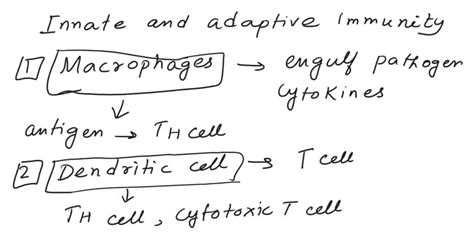 Innate and adaptive Immunity
1 Macrophages → engulf pathogen
cytokines
↓
antigen → TH cell
2 Dendritic cell → T cell
↓
TH cell, cytotoxic T cell